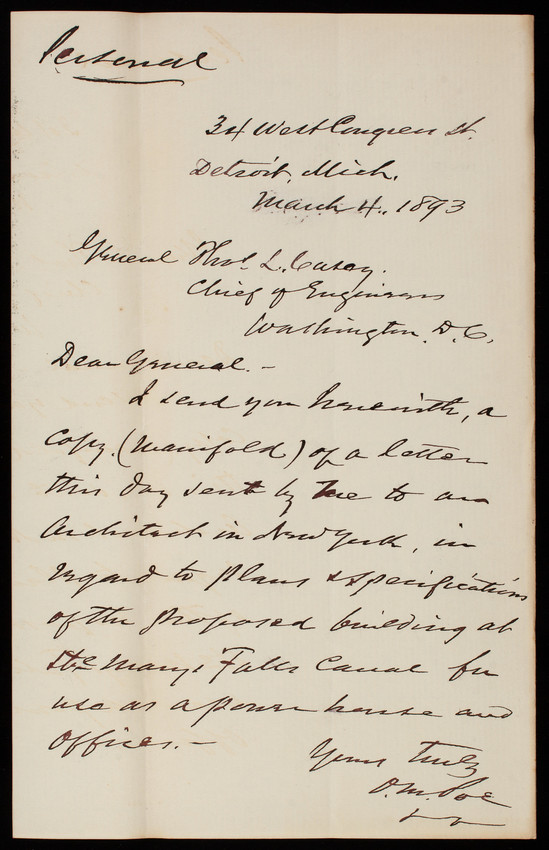 Personal
34 West Congress St.
Detroit, Mich.
March 4., 1893
General Thos. L. Casey.
Chief of Engineers
Washington. D. C.
Dear General. -
I send you herewith, a
copy. (manifold) of a letter
this day sent by me to an
Architect in New York, in
regard to plans & specifications
of the proposed building at
Ste Marys Falls Canal for
use as a power house and
offices. -
Yours Truly
O. M. Poe